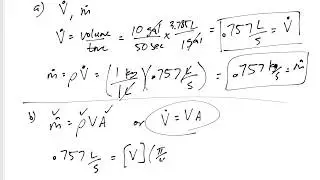 a) V̇, ṁ
V̇ = volume/time = 10 gal/50 sec × 3.785 L/1 gal = .757 L/s = V̇
ṁ = ρV̇ = (1 kg/L)(.757 L/s) = .757 kg/s = ṁ
b) ṁ = ρVA or V̇ = VA
.757 L/s = [V] (π/4